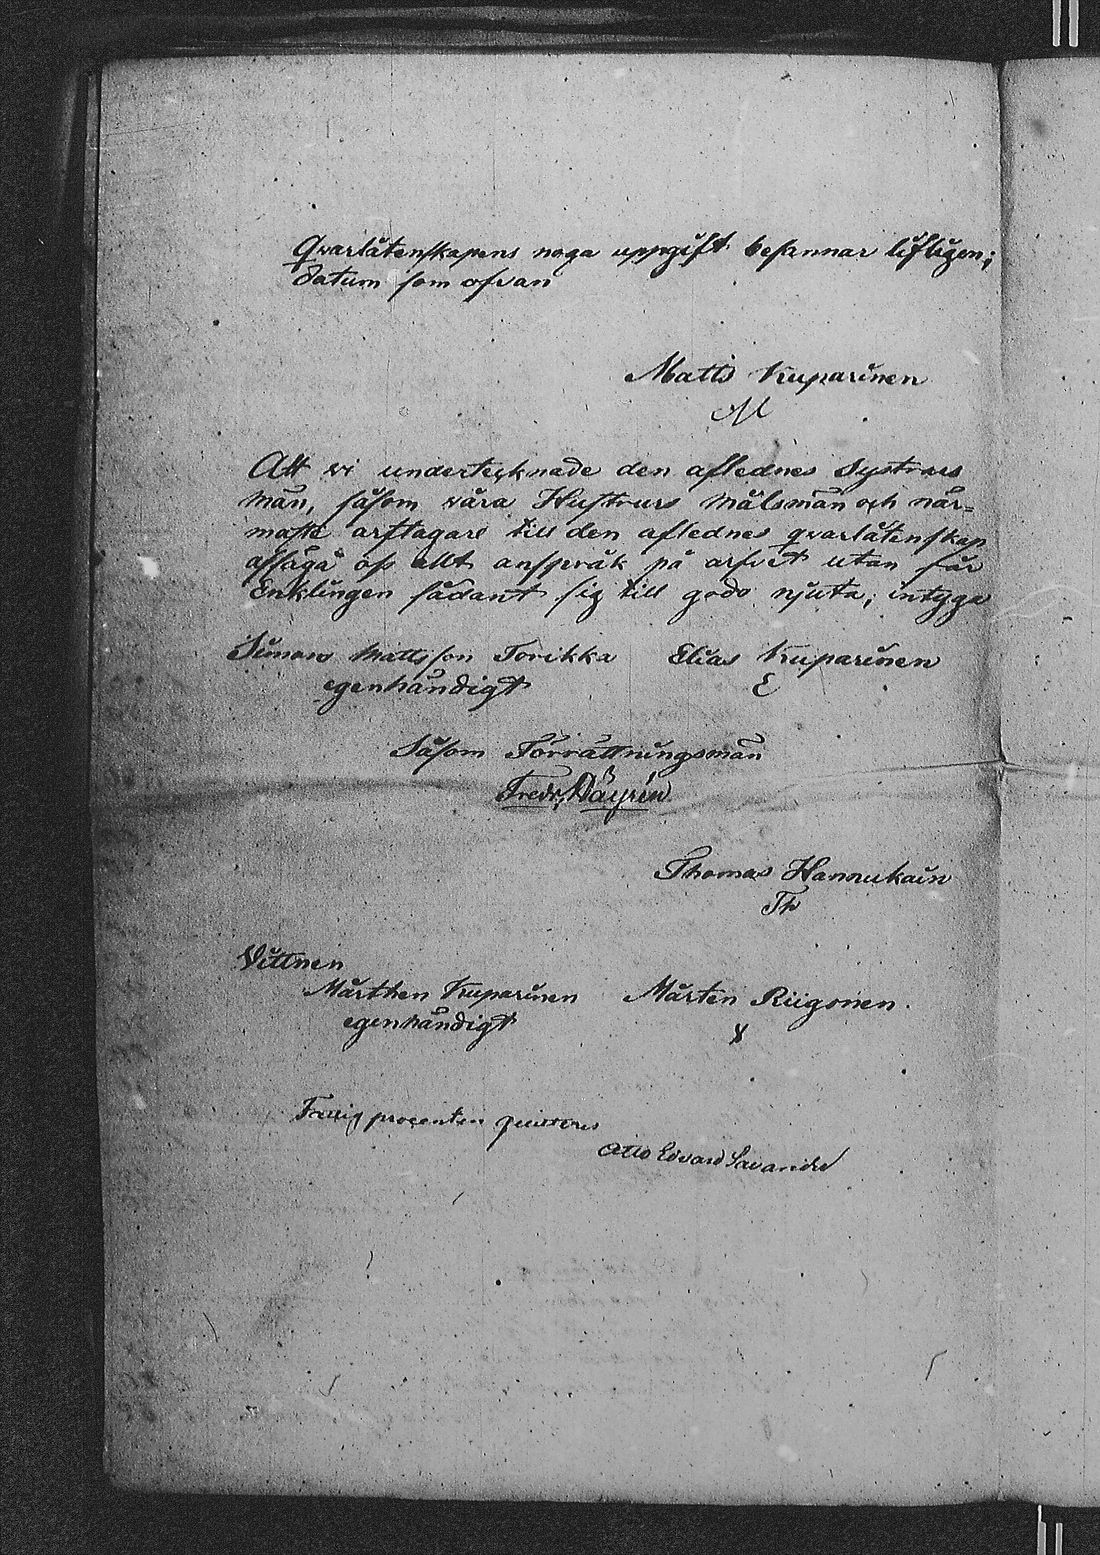 Qvarlåtenskapens noga uppgift besannar lifligen;
datum som ofvan
Matts Kuparinen
M
Att vi undertecknade den aflednes Systrars
män, såsom våra Hustrurs målsmän och när-
maste arftagare till den aflednes qvarlåtenskap
afsäga oss allt anspråk på arfvet utan får
Enklingen sådant sig till godo njuta, intyga
Simon Mattsson Torikka Elias Kuparinen
egenhändigt E
Såsom Förrättningsmän
Fredr. Däyrén
Thomas Hannukain
Th
Vittnen
Mårthen Kuparinen Mårten Riigonen.
egenhändigt X
Fattig procenten quitteras
Otto Edvard Savander